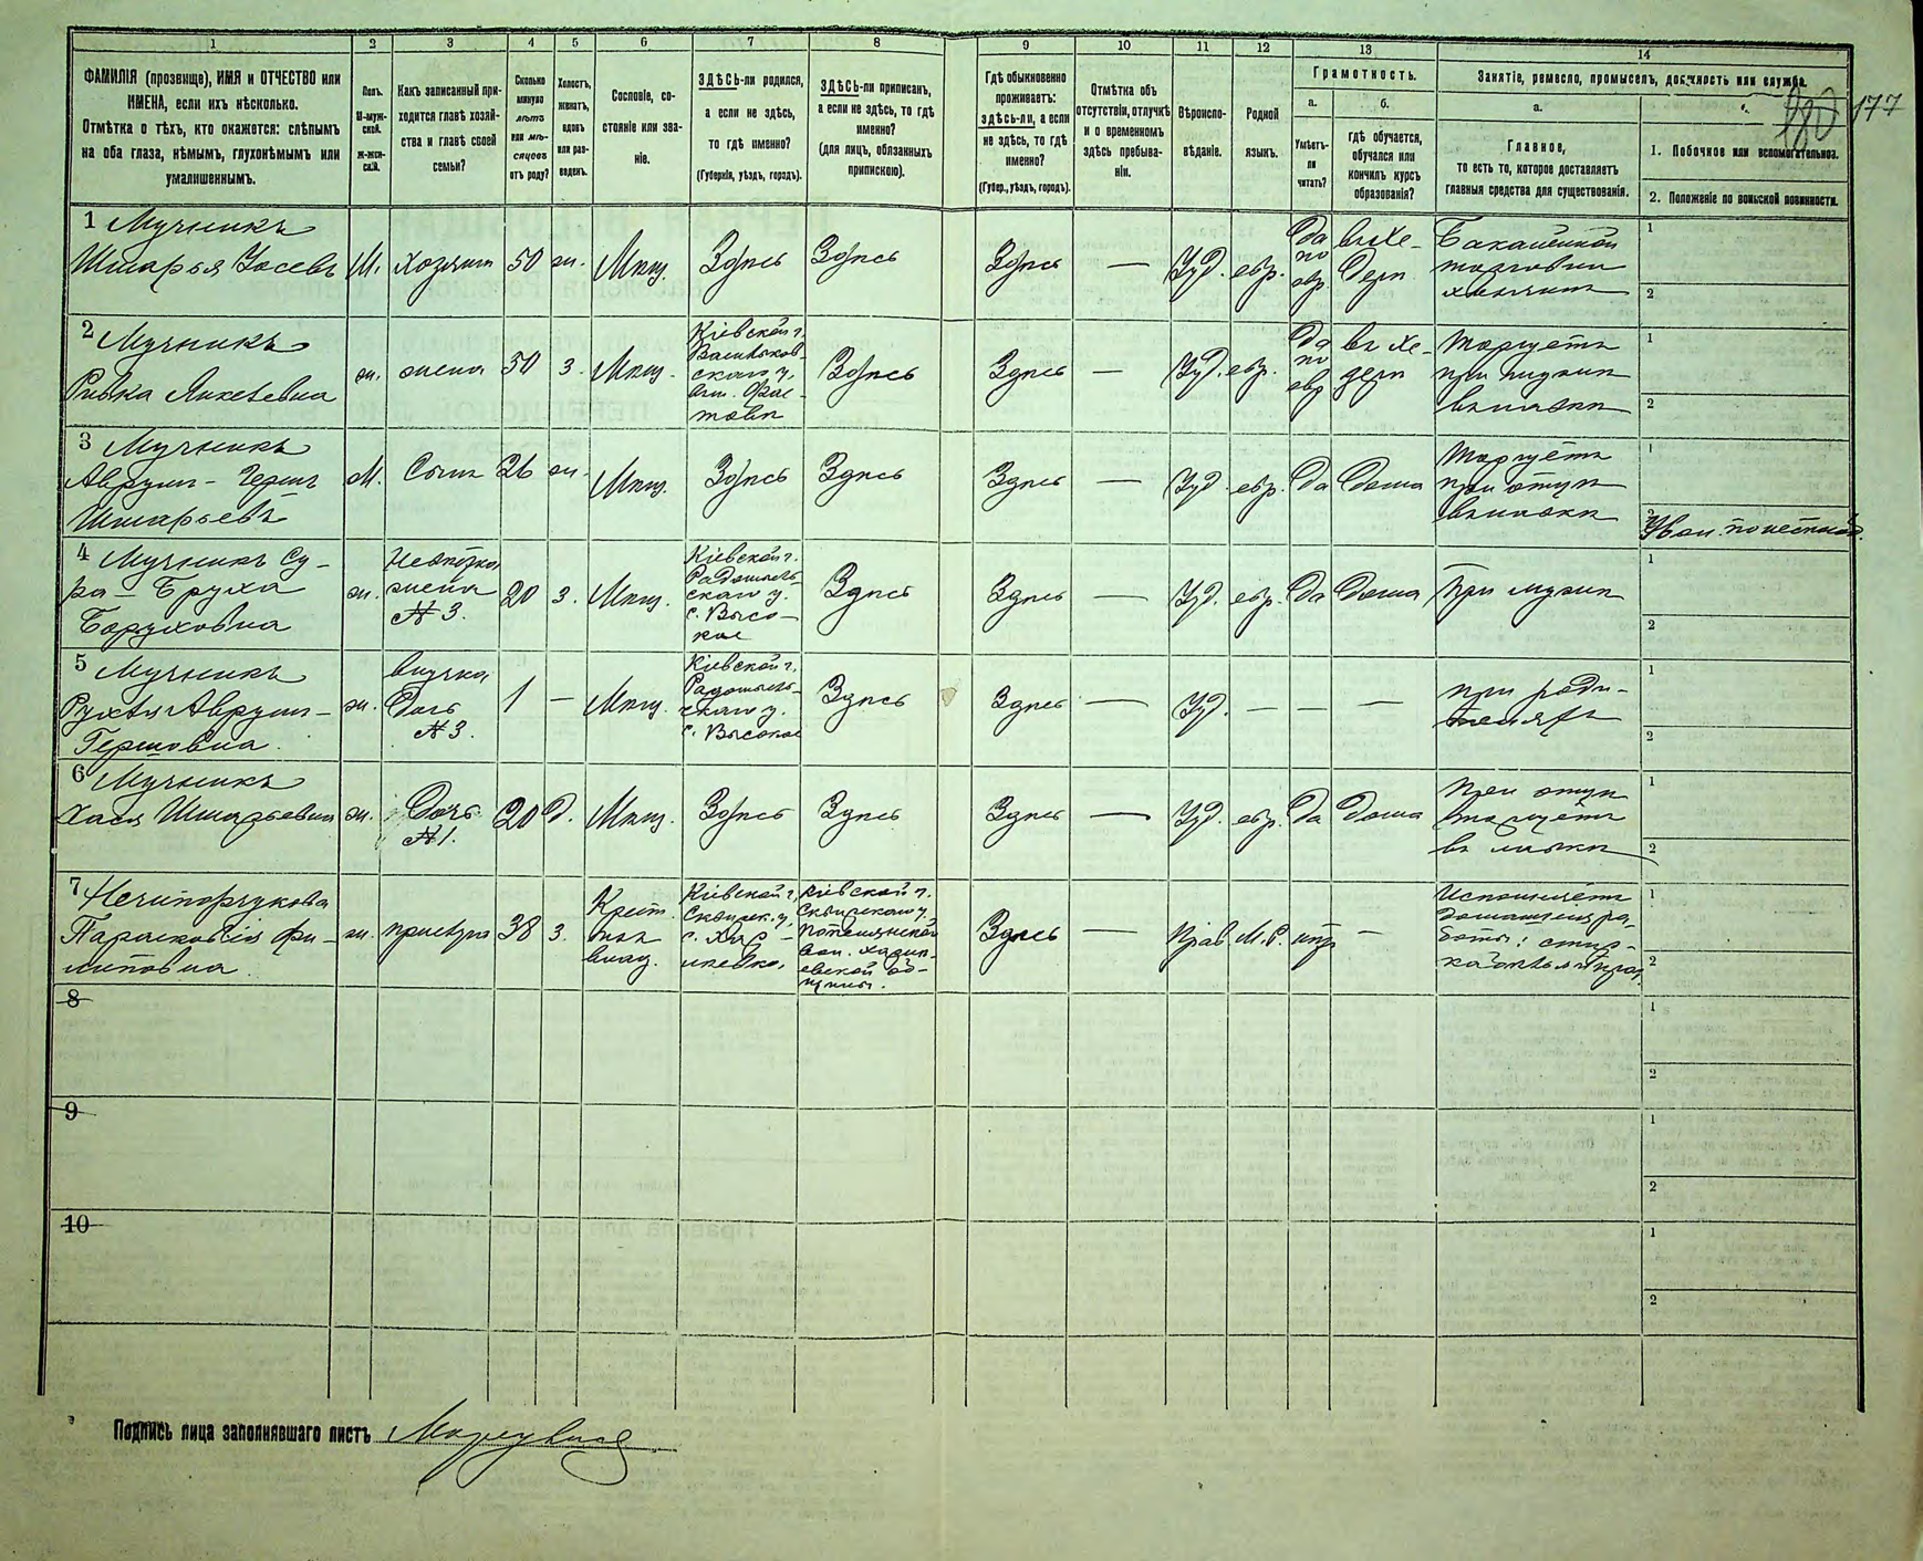 1 2 3 4 5 6 7 8 9 10 11 12 13 14
ФАМИЛІЯ (прозвище), ИМЯ и ОТЧЕСТВО или
ИМЕНА, если ихъ нѣсколько.
Отмѣтка о тѣхъ, кто окажется: слѣпымъ
на оба глаза, нѣмымъ, глухонѣмымъ или
умалишеннымъ.
Полъ.
М-муж-
ской.
Ж-жен-
скій.
Какъ записанный при-
ходится главѣ хозяй-
ства и главѣ своей
семьи?
Сколько
минуло
лѣтъ
или мѣ-
сяцевъ
отъ роду?
Холостъ,
женатъ,
вдовъ
или раз-
веденъ.
Сословіе, со-
стояніе или зва-
ніе.
ЗДѢСЬ-ли родился,
а если не здѣсь,
то гдѣ именно?
(Губернія, уѣздъ, городъ).
ЗДѢСЬ-ли приписанъ,
а если не здѣсь, то гдѣ
именно?
(для лицъ, обязанныхъ
припискою).
Гдѣ обыкновенно
проживаетъ:
здѣсь-ли, а если
не здѣсь, то гдѣ
именно?
(Губер., уѣздъ, городъ).
Отмѣтка объ
отсутствіи, отлучкѣ
и о временномъ
здѣсь пребыва-
ніи.
Вѣроиспо-
вѣданіе.
Родной
языкъ.
Грамотность.
а.
Умѣетъ-
ли
читать?
б.
гдѣ обучается,
обучался или
кончилъ курсъ
образованія?
Занятіе, ремесло, промыселъ, должность или служба.
177
а.
Главное,
то есть то, которое доставляетъ
главныя средства для существованія.
1. Побочное или вспомогательное.
2. Положеніе по воинской повинности.
1 Мучникъ
Шмарья Іосевъ
М.
хозяинъ
50
ж.
Мѣщ.
Здѣсь
Здѣсь
Здѣсь
—
Іуд.
евр.
Да
по
евр.
въ хе-
дерѣ
Бакалейной
торговли
хозяинъ
1
2
2 Мучникъ
Ривка
ж.
жена
50
з.
Мѣщ.
Кіевской г.
Васильков-
скаго у.
Фас-
товѣ
Здѣсь
Здѣсь
—
Іуд.
евр.
Да
по
евр
въ хе-
дерѣ
Торгуетъ
при мужѣ
въ лавкѣ
1
2
3 Мучникъ
Аврумъ - Гершъ
Шмарьевъ
М.
Сынъ
26
ж.
Мѣщ.
Здѣсь
Здѣсь
Здѣсь
—
Іуд.
евр.
Да
Дома
Торгуетъ
при отцѣ
въ лавкѣ
1
2
4 Мучникъ Су-
ра - Бруха
Боруховна
ж.
Невѣстка
жена
№ 3.
20
з.
Мѣщ.
Кіевской г.
Радомысль-
скаго у.
с. Высо-
кое
Здѣсь
Здѣсь
—
Іуд.
евр.
Да
Дома
При мужѣ
1
2
5 Мучникъ
Рухля Аврум-
Гершовна.
ж.
внучка
Дочь
№ 3.
1
—
Мѣщ.
Кіевской г.
Радомысль-
скаго у.
с. Высокое
Здѣсь
Здѣсь
—
Іуд.
—
—
—
при роди-
теляхъ
1
2
6 Мучникъ
Хася Шмарьевна
ж.
Дочь
№ 1.
20
д.
Мѣщ.
Здѣсь
Здѣсь
Здѣсь
—
Іуд.
евр.
Да
Дома
При отцѣ
торгуетъ
въ лавкѣ
1
2
7 Нечипорчукова
Парасковія Фи-
липповна
ж.
прислуга
38
з.
Крест.
влад.
Кіевской г.
Сквирск. у.
с.
Кіевской г.
Сквирскаго у.
вол.
Здѣсь
—
Прав
М. Р.
нѣт
—
Исполняетъ
домашнія ра-
боты: стир-
1
2
8
1
2
9
1
2
10
1
2
Подпись лица заполнявшаго листъ